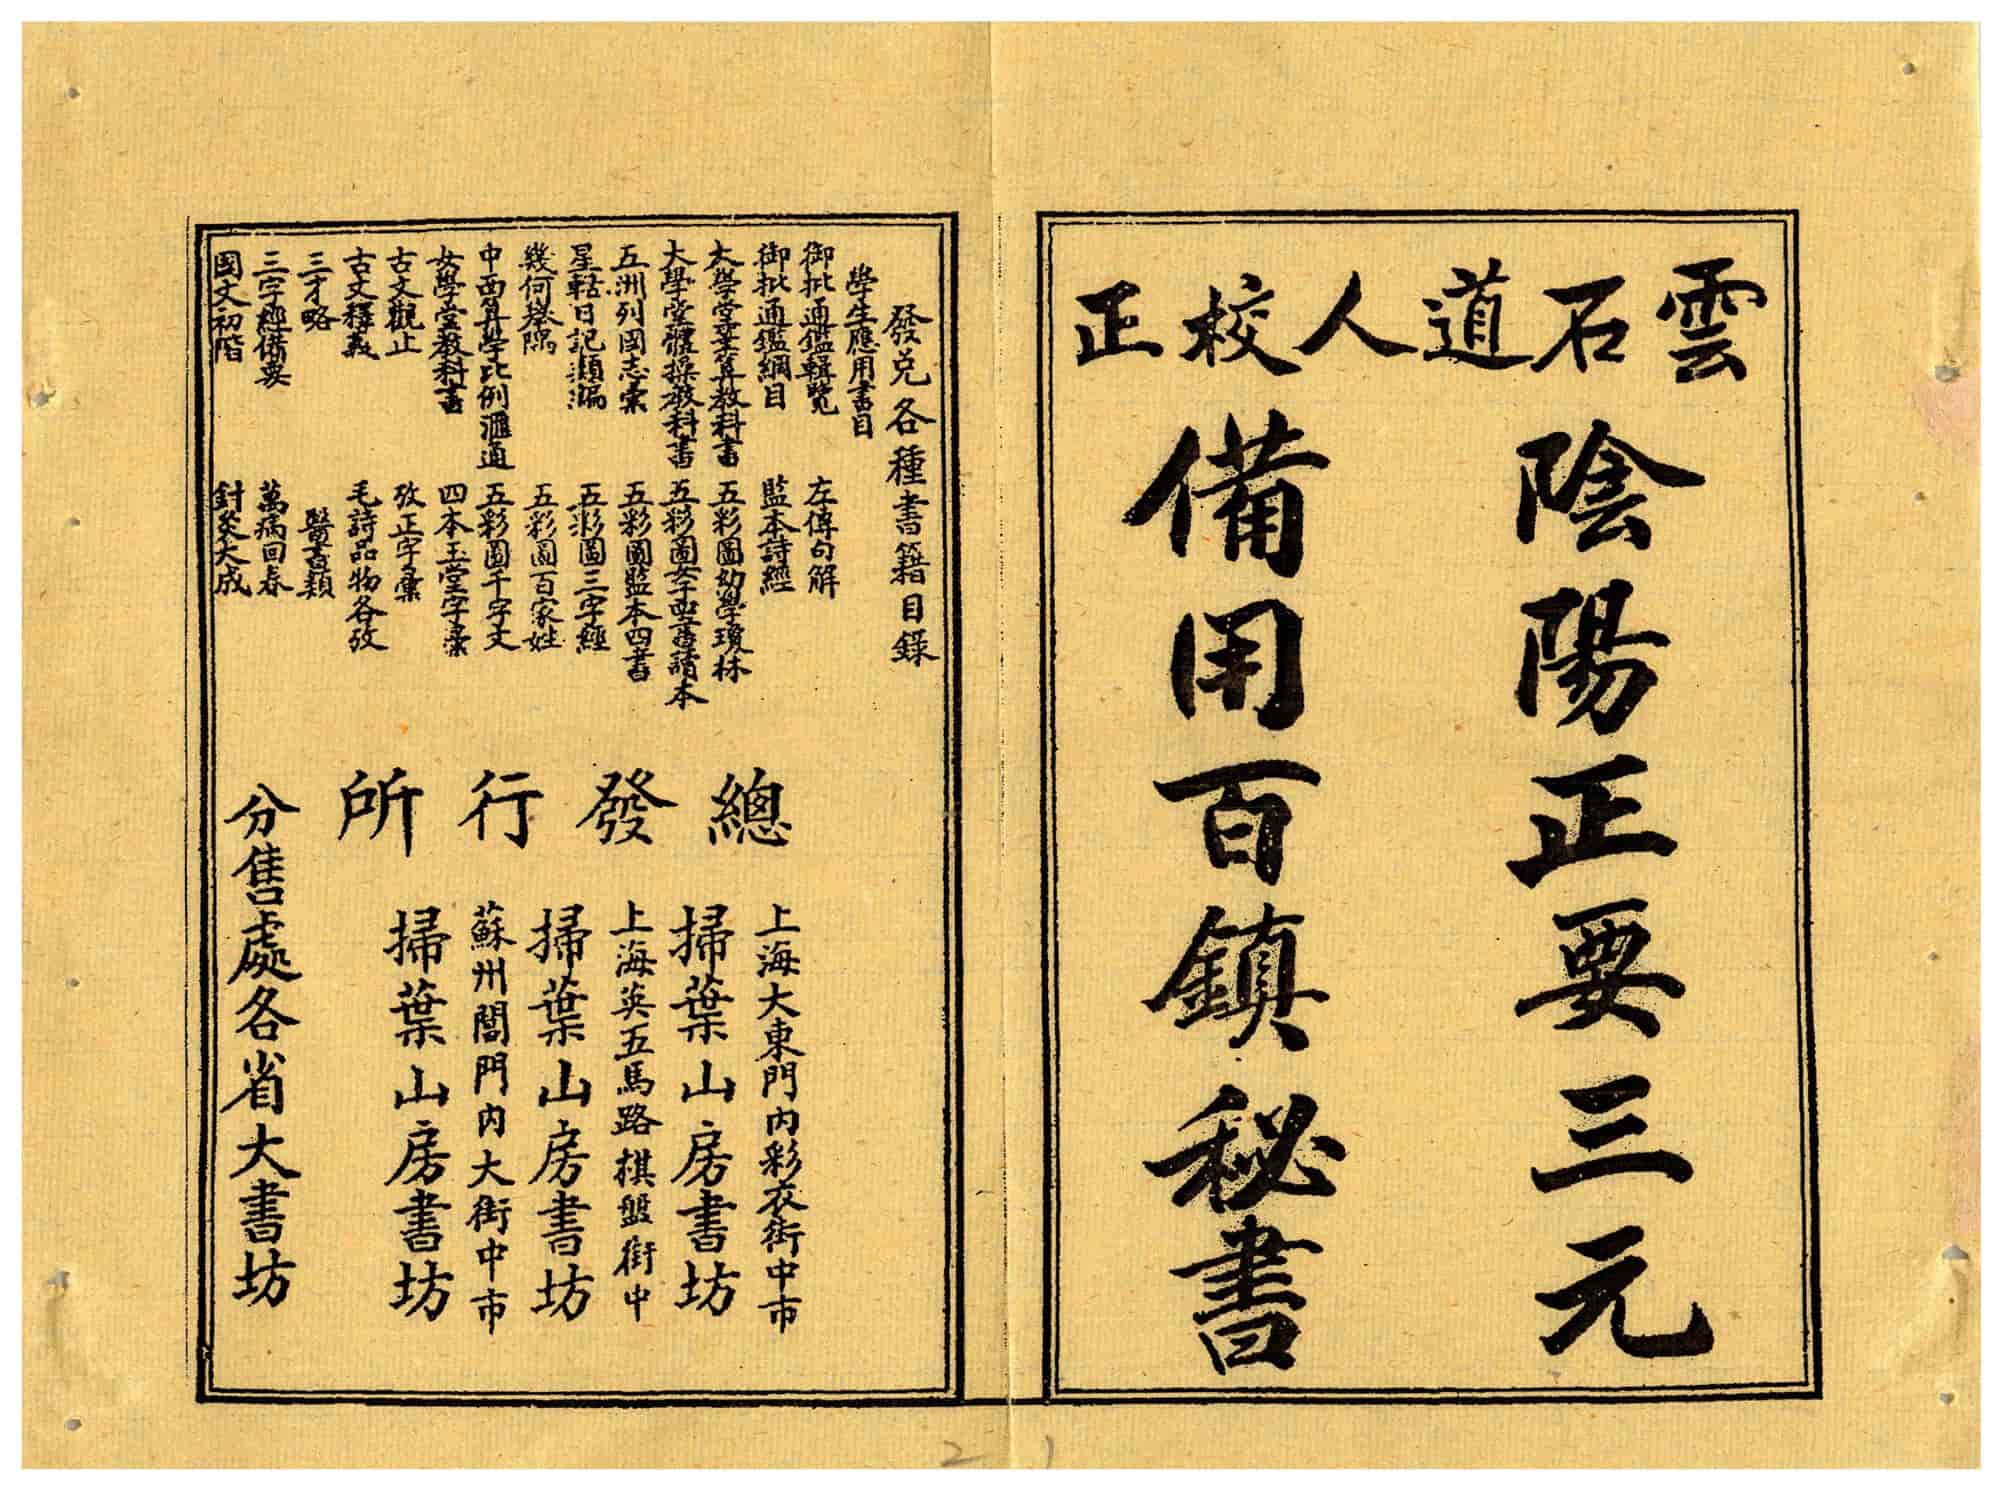 雲石道人校正
陰陽正要三元
備用百鎮秘書
發兌各種書籍目錄
學生應用書目
御批通鑑輯覽
御批通鑑綱目
大學堂筆算教科書
大學堂體操教科書
五洲列國志彙
星軺日記類編
幾何舉隅
中西算學比例滙通
女學堂教科書
古文觀止
古文釋義
三才略
三字經備要
國文初階
左傳句解
監本詩經
五彩圖幼學瓊林
五彩圖女子四書讀本
五彩圖監本四書
五彩圖三字經
五彩圖百家姓
五彩圖千字文
四本玉堂字彙
攷正字彙
毛詩品物各攷
醫書類
萬病回春
針灸大成
總發行所
上海大東門內彩衣街中市
掃葉山房書坊
上海英五馬路棋盤街中
掃葉山房書坊
蘇州閶門內大街中市
掃葉山房書坊
分售處各省大書坊
2 1